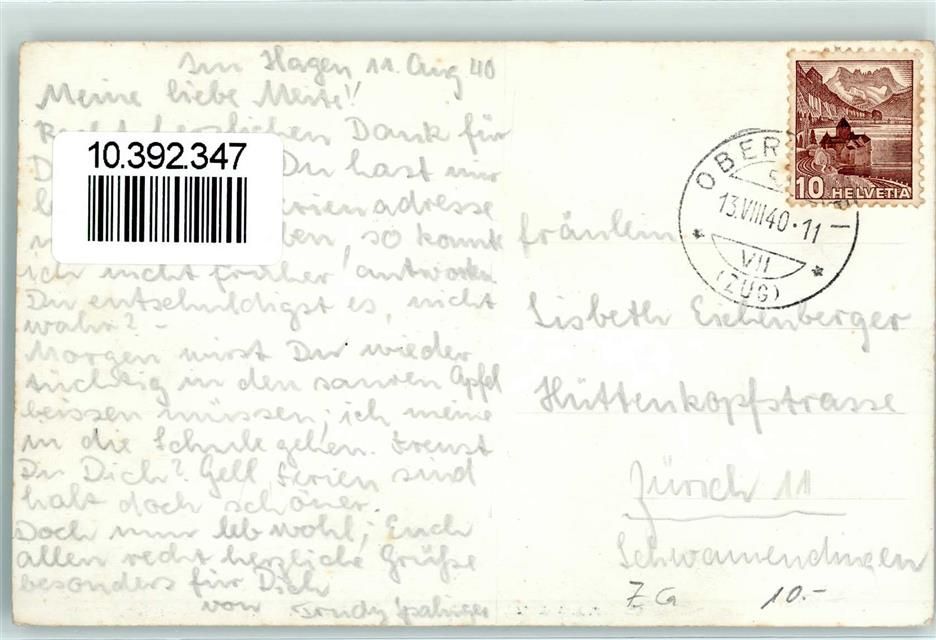 Im Hagen 11. Aug 40
Meine liebe
Recht herzlichen Dank für
Du hast mir
Ferienadresse
so konnte
ich nicht früher antworten
Du entschuldigst es, nicht
wahr? -
Morgen wirst Du wieder
tüchtig in den sauren Apfel
beissen müssen; ich meine
in die Schule gehen. Freust
Du Dich? Gell, Ferien sind
halt doch schöner.
Doch nun leb wohl; Euch
allen recht herzliche Grüße
besonders für Dich
von Trudy
10.392.347
OBER
13.VIII40·11
VII
(ZUG)
10 HELVETIA
Fräulein
Lisbeth Eichenberger
Hüttenkopfstrasse
Zürich 11
Schwamendingen
10.-